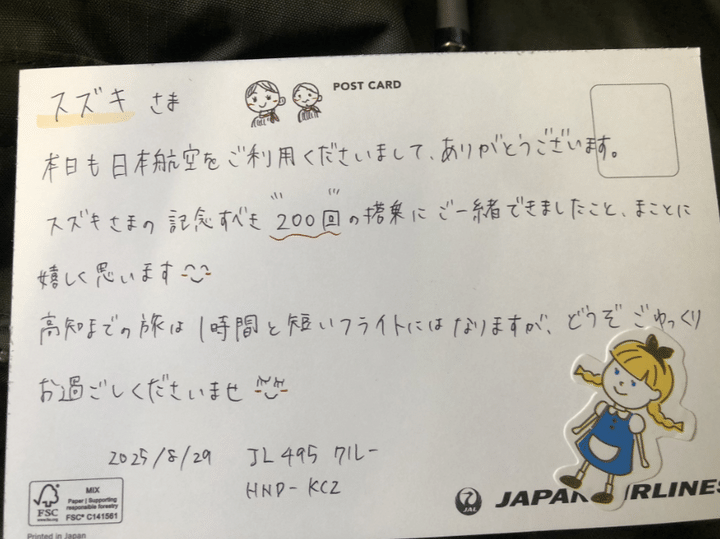 スズキ さま
POST CARD
本日も日本航空をご利用くださいまして、ありがとうございます。
スズキさまの記念すべき 200回 の搭乗に ご一緒できましたこと、まことに
嬉しく思います
高知までの旅は 1時間と短いフライトにはなりますが、どうぞ ごゆっくり
お過ごしくださいませ
2025/8/29 JL495 クルー
HND-KCZ
FSC
www.fsc.org
MIX
Paper | Supporting
responsible forestry
FSC® C141561
JAL
JAPAN AIRLINES
Printed in Japan